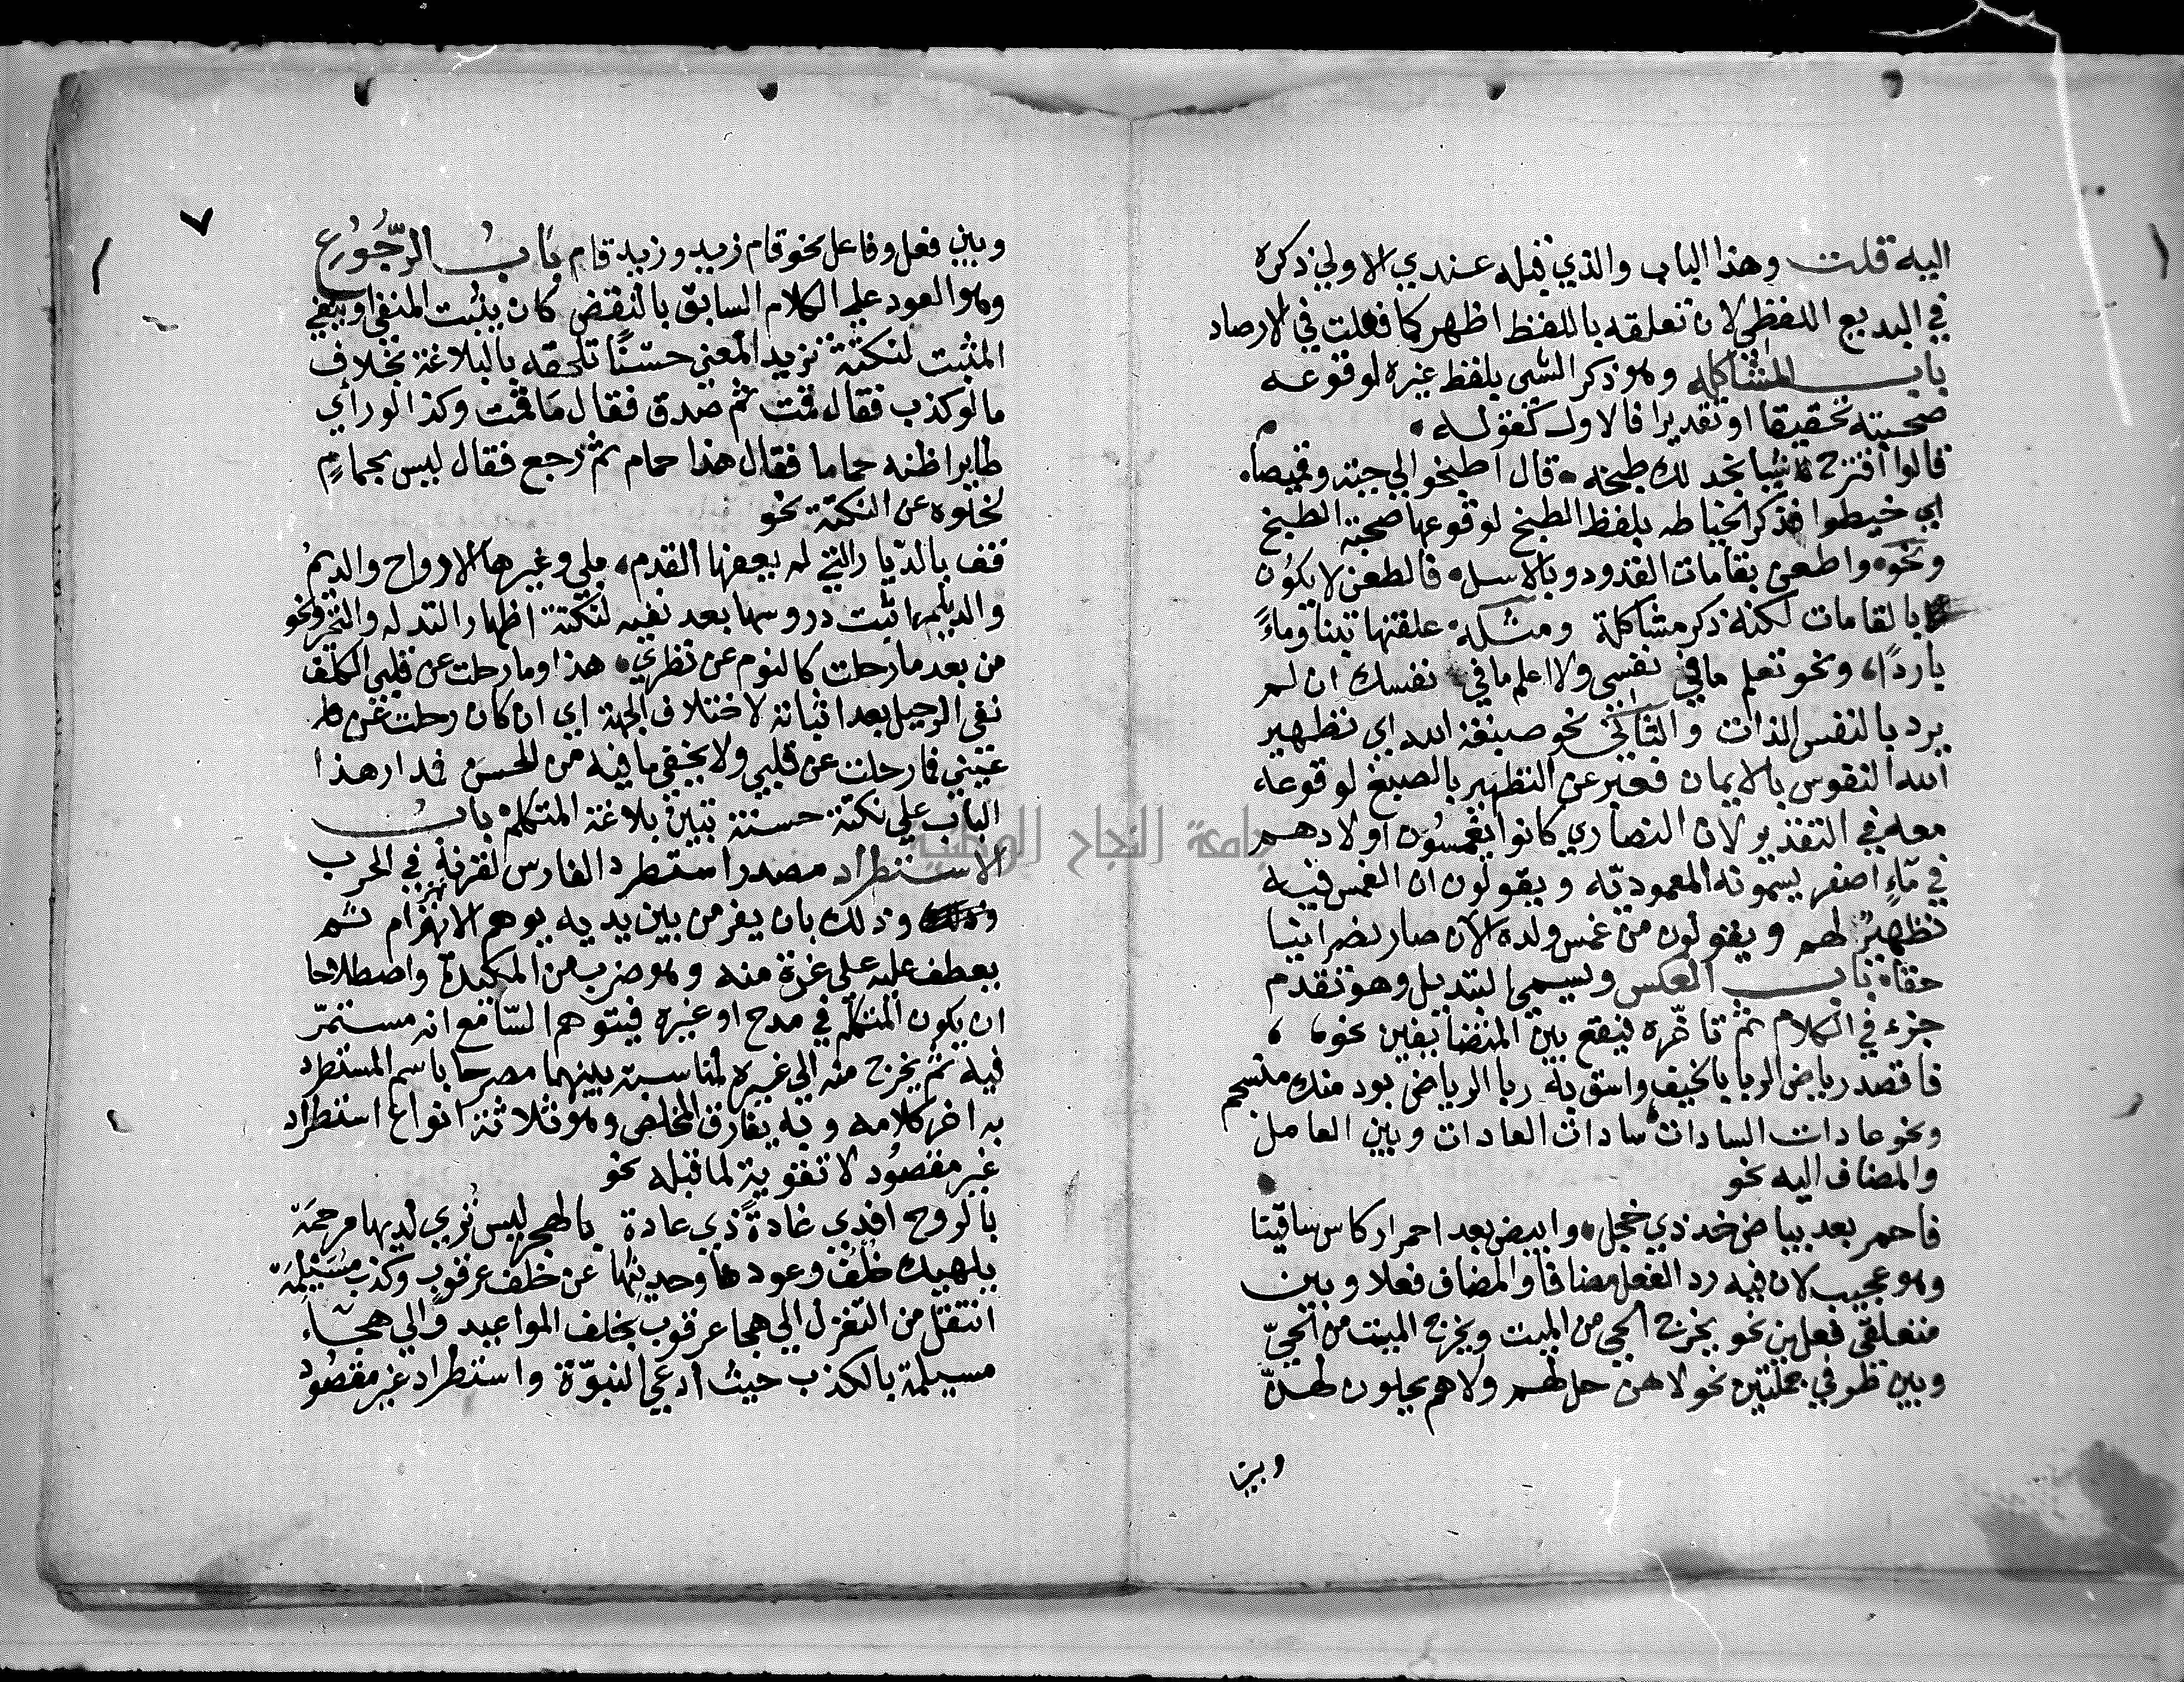 اليه قلت وهذا الباب والذي قبله عندي الاولي ذكره
في البديع اللفظي لان تعلقه باللفظ اظهر كما فعلت في الارصاد
باب المشاكله وهو ذكر الشي بلفظ غيره لوقوعه
صحبته تحقيقا او تقديرا فالاول كقوله
قالوا اقترح شيا نجد لك طبخه قال اطبخوا لي جبة وقميصا
اي خيطوا فذكر الخياطه بلفظ الطبخ لوقوعها صحبة الطبخ
ونحوه واطعن بقامات القدود وبالاسل فالطعن لا يكون
بالقامات لكنه ذكر مشاكلة ومثله علفتها تبنا وماءً
باردًا ونحو تعلم ما في نفسي ولا اعلم ما في نفسك ان لم
يرد بالنفس الذات والثاني نحو صبغة الله اي تطهير
الله النفوس بالايمان فعبر عن التطهير بالصبغ لوقوعه
معه في التقدير لان النصاري كانوا يغمسون اولادهم
في ماءٍ اصفر يسمونه المعموديه ويقولون ان الغمس فيه
تطهيرٌ لهم ويقولون من غمس ولده الآن صار نصرانيا
حقا باب العكس ويسمي التبديل وهو تقدم
جزء في الكلام ثم تاخره فيقع بين المتضايفين نحو
فاقصد رياض الربا بالخيف واسق به ربا الرياض بود منك منسجم
ونحو عادات السادات سادات العادات وبين العامل
والمضاف اليه نحو
فاحمر بعد بياض خد ذي خجل وابيض بعد احمرار كاس ساقينا
وهو عجيب لان فيه رد الفعل مضافا والمضاف فعلا وبين
متعلقي فعلين نحو يخرج الحي من الميت ويخرج الميت من الحيّ
وبين ظرفي جملتين نحو لا هن حل لهم ولا هم يحلون لهنّ
وبين
٧
وبين فعل وفاعل نحو قام زيد وزيد قام باب الرّجُوُع
وهو العود علي الكلام السابق بالنقض كان يثبت المنفي او ينفي
المثبت لنكتة تزيد المعني حسنًا تلحقه بالبلاغة بخلاف
ما لو كذب فقال قمت ثم صدق فقال ما قمت وكذا لو راي
طايرا ظنه حماما فقال هذا حمام ثم رجع فقال ليس بحمامٍ
لخلوه عن النكتة نحو
قف بالديار التي لم يعفها القدم بلي وغيرها الارواح والديمُ
والديلم اثبت دروسها بعد نفيه لنكتة اظهار التدله والتحير ونحو
من بعد ما رحلت كالنوم عن نظري هذا وما رحلت عن قلبي الكلف
نفي الرحيل بعد اثباته لاختلاف الجهة اي ان كان رحلت عن
عيني فما رحلت عن قلبي ولا يخفي ما فيه من الحسن فمدار هذا
الباب علي نكتة حسنة تبين بلاغة المتكلم باب
الاستطراد مصدر استطرد الفارس لقرنه في الحرب
وذلك بان يفر من بين يديه يوهم الانهزام ثم
يعطف عليه علي غرة منه وهو ضرب من المكيدة واصطلاحا
ان يكون المتكلم في مدح او غيره فيتوهم السّامع انه مستمرّ
فيه ثم يخرج منه الي غيره لمناسبة بينهما مصرحا باسم المستطرد
به اخر كلامه وبه يفارق المخلص وهو ثلاثة انواع استطراد
غير مقصود لا تقوية لما قبله نحو
بالروح افدي غادةً ذي عادة بالهجر ليس تري لديها مرحمَة
يلهيك خلف وعودها وحديثها عن خلف عرقوب وكذب مسَيلمَة
انتقل من التغزل الي هجا عرقوب بخلف المواعيد والي هجاء
مسيلمة بالكذب حيث ادعي النبوّة واستطراد غير مقصود
جامعة النجاح الوطنية